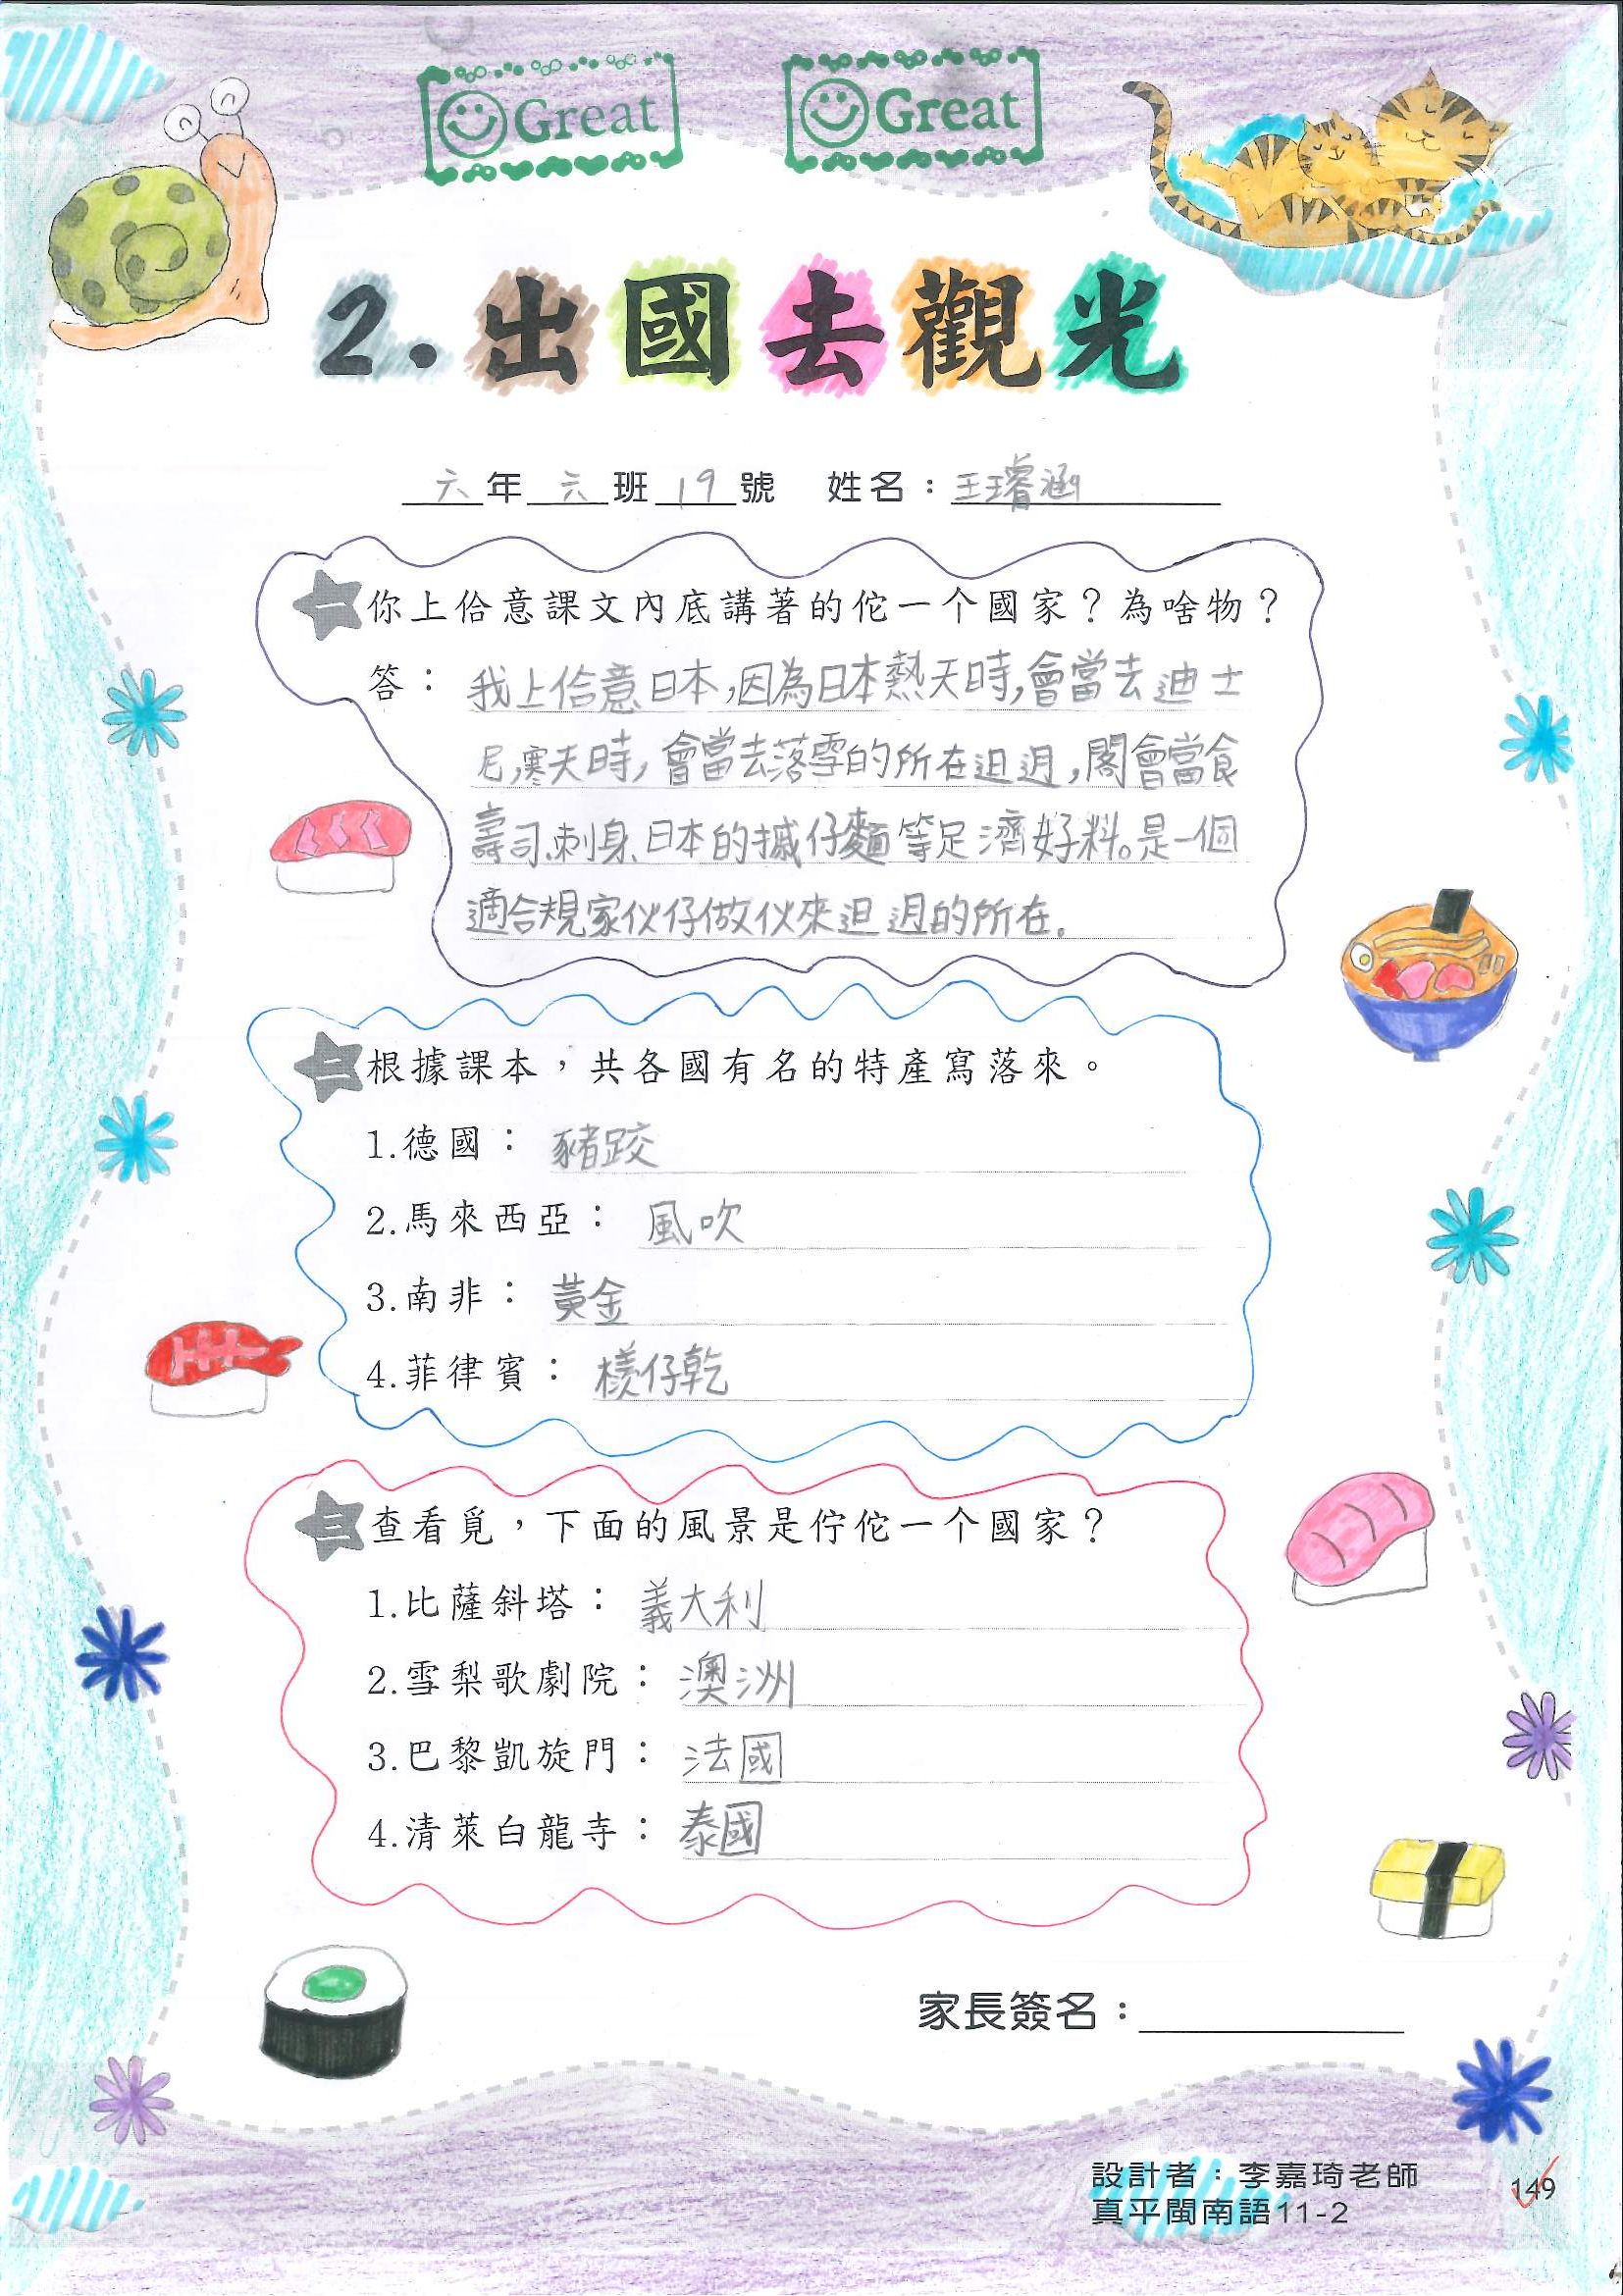 Great
Great
2.出國去觀光
六年六班19號 姓名：王璿涵
一 你上佮意課文內底講著的佗一个國家？為啥物？
答：我上佮意日本,因為日本熱天時,會當去迪士
尼,寒天時,會當去落雪的所在迌迌,閣會當食
壽司、刺身、日本的摵仔麵等足濟好料。是一個
適合規家伙仔做伙來迌迌的所在。
二 根據課本，共各國有名的特產寫落來。
1.德國：豬跤
2.馬來西亞：風吹
3.南非：黃金
4.菲律賓：檨仔乾
三 查看覓，下面的風景是佇佗一个國家？
1.比薩斜塔：義大利
2.雪梨歌劇院：澳洲
3.巴黎凱旋門：法國
4.清萊白龍寺：泰國
家長簽名：
設計者：李嘉琦老師
真平閩南語11-2
149